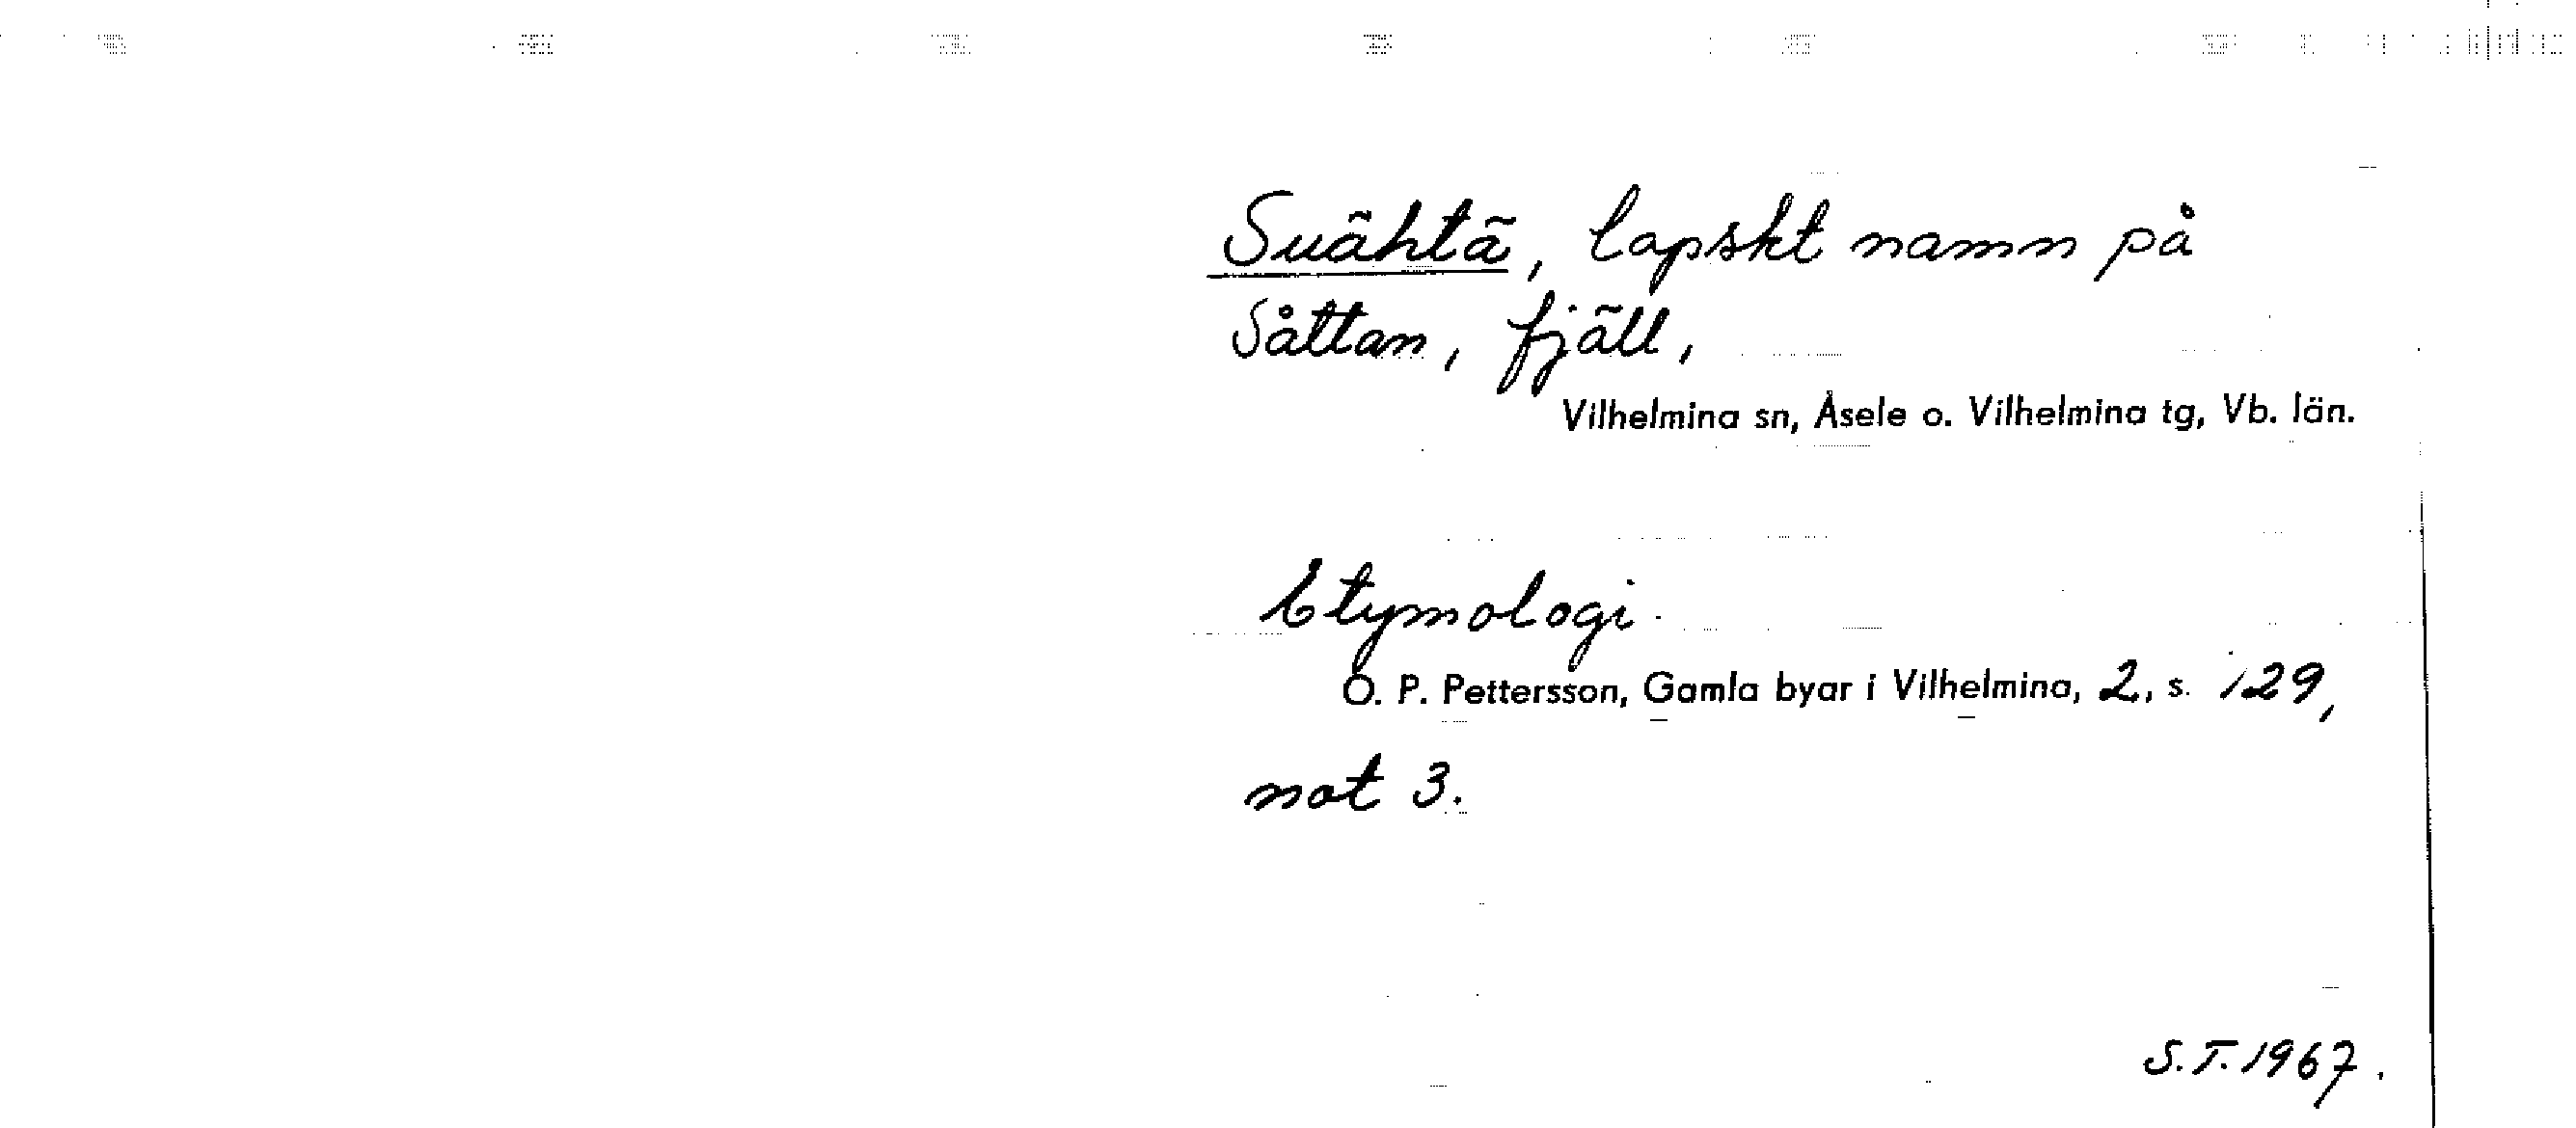 Suähtä, lapskt namn på
Såttan, fjäll,
Vilhelmina sn, Åsele o. Vilhelmina tg, Vb. län.
Etymologi.
O. P. Pettersson, Gamla byar i Vilhelmina, 2, s. 129,
not 3.
S.T. 1967.